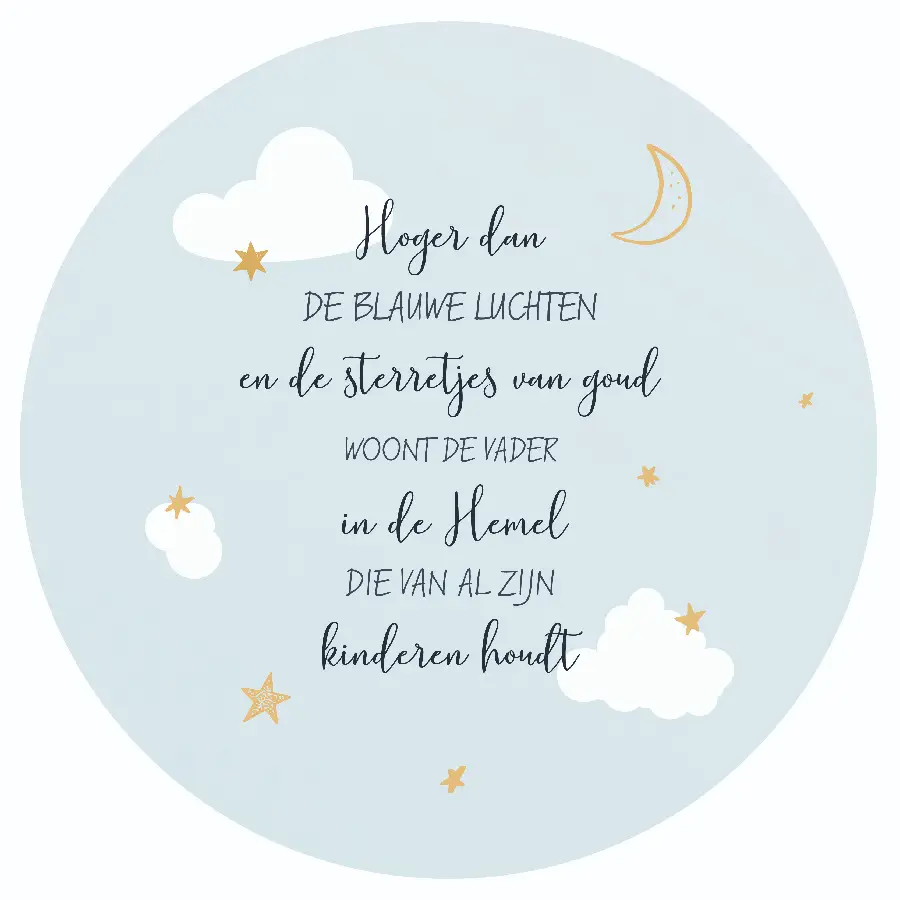 Hoger dan
DE BLAUWE LUCHTEN
en de sterretjes van goud
WOONT DE VADER
in de Hemel
DIE VAN AL ZIJN
kinderen houdt